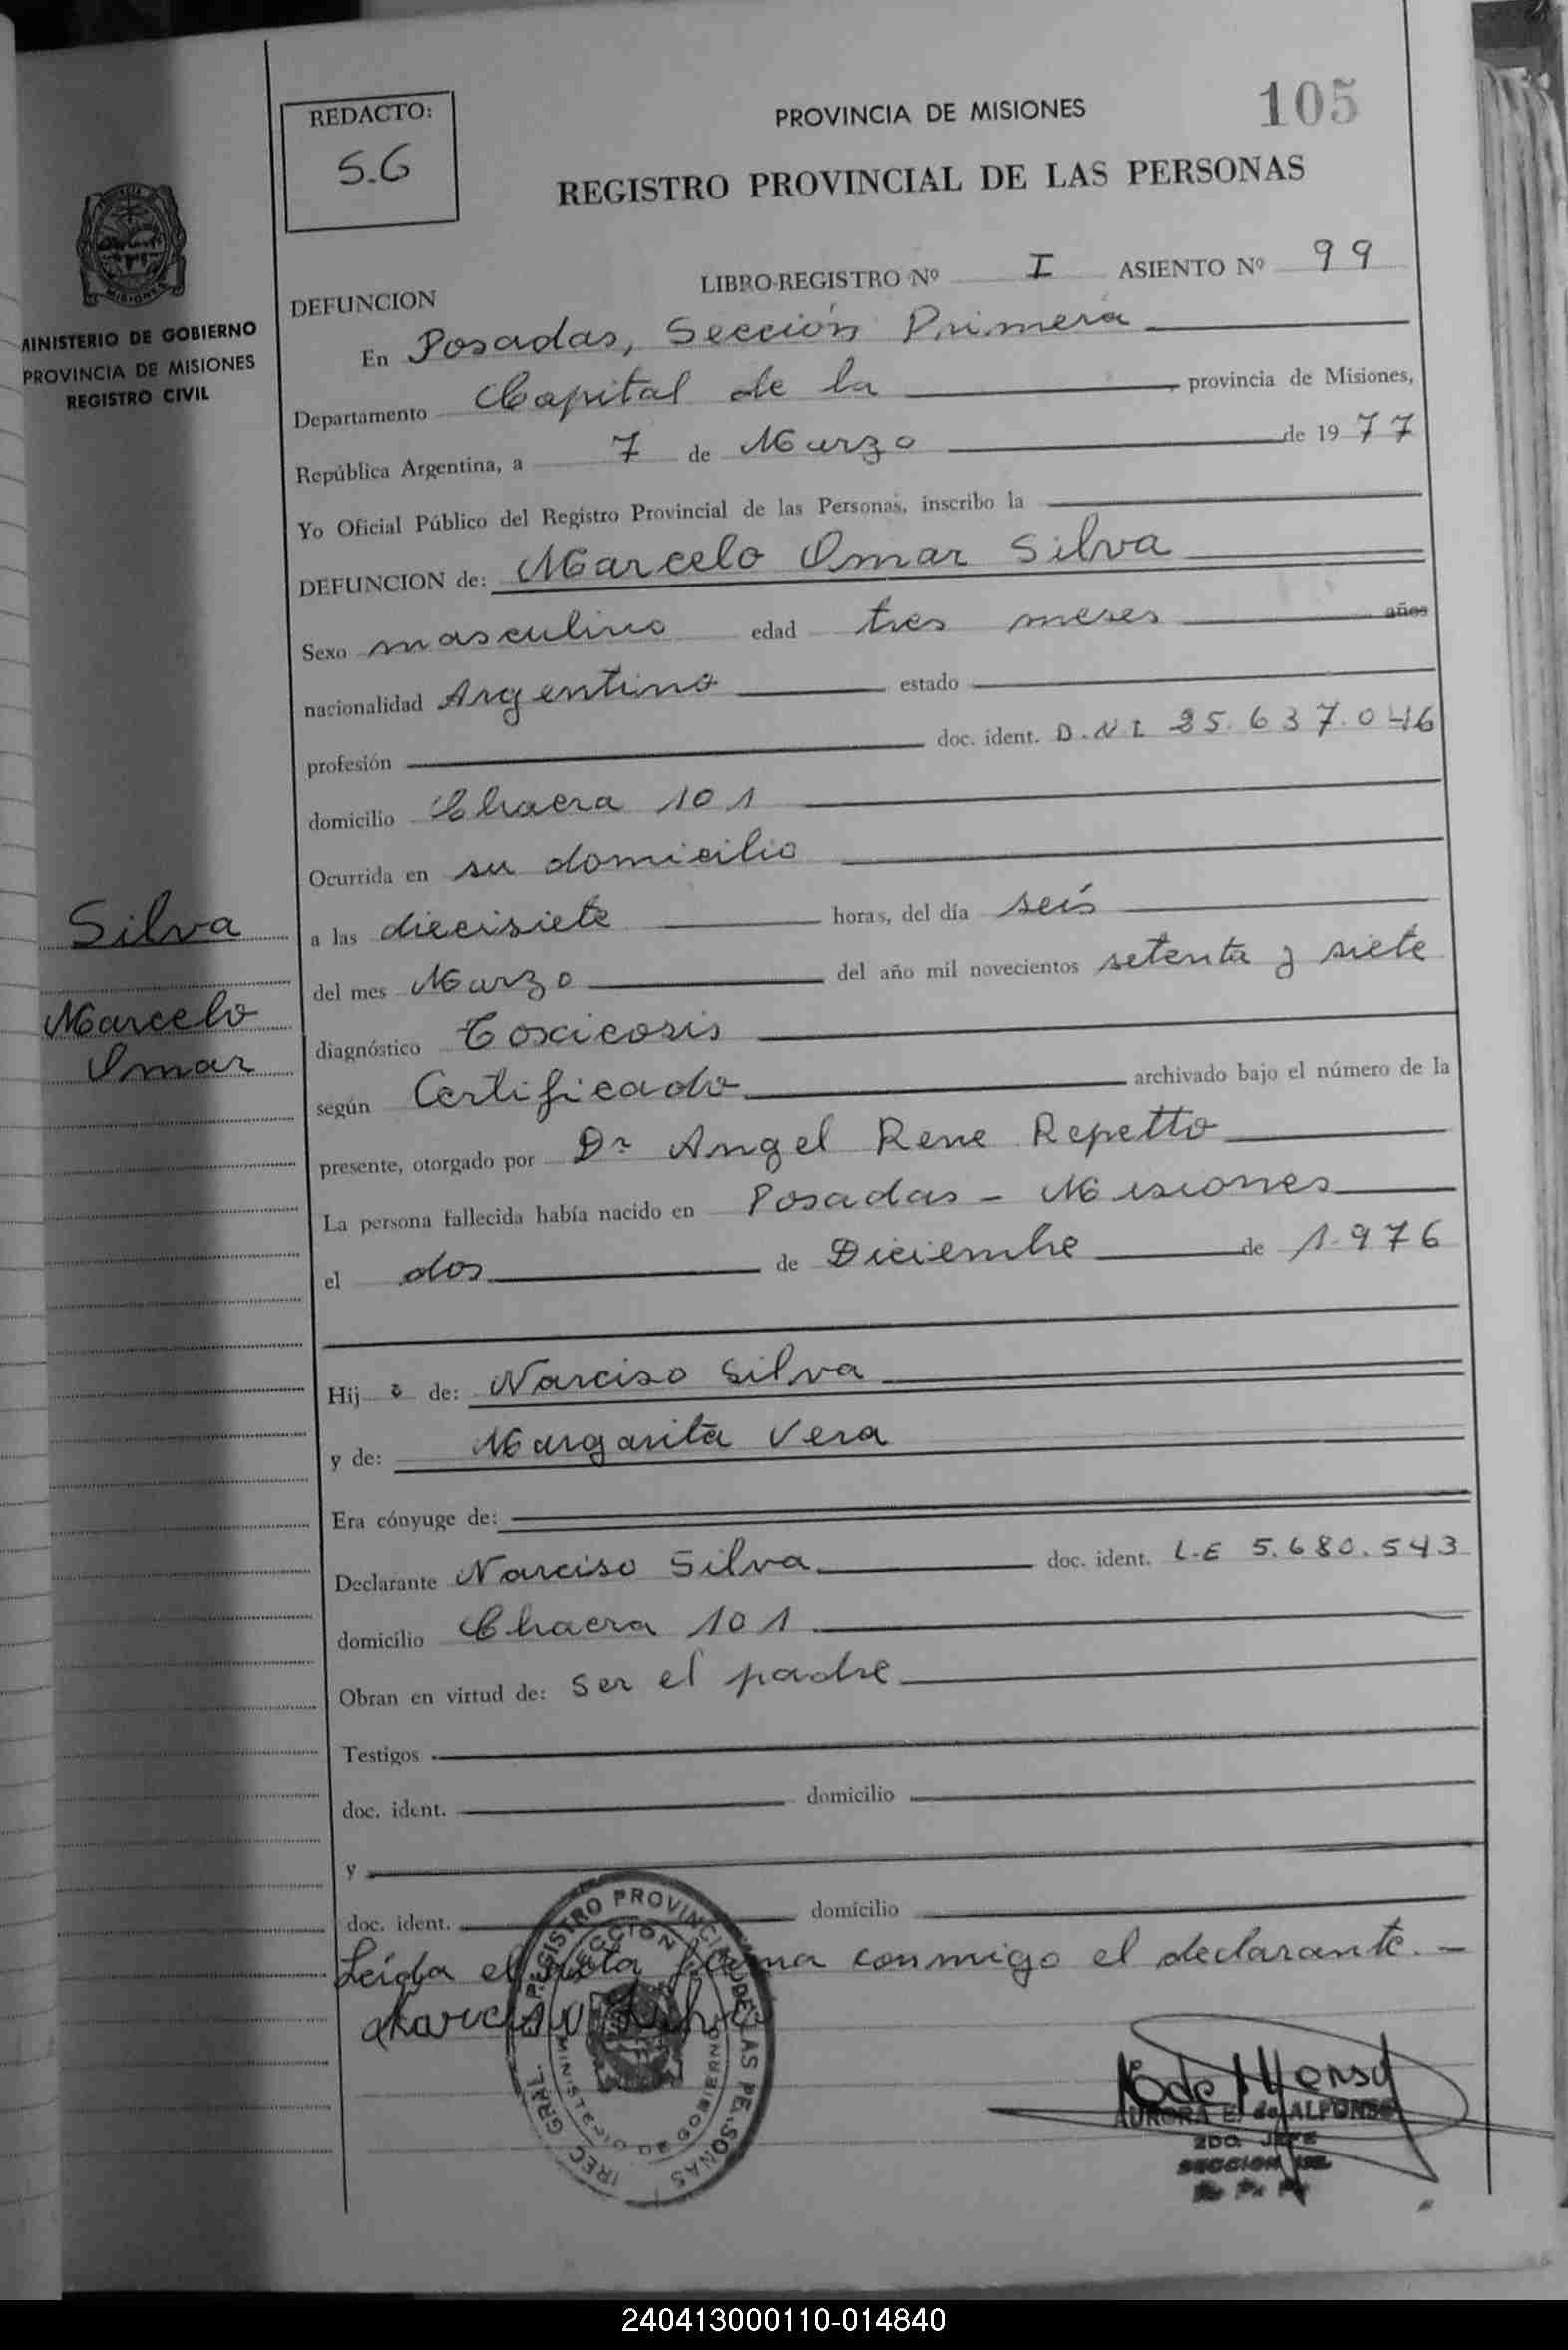 REDACTO:
S.G
PROVINCIA DE MISIONES
105
REGISTRO PROVINCIAL DE LAS PERSONAS
MINISTERIO DE GOBIERNO
PROVINCIA DE MISIONES
REGISTRO CIVIL
DEFUNCION
LIBRO-REGISTRO Nº I ASIENTO Nº 99
En Posadas, Sección Primera
Departamento Capital de la provincia de Misiones,
República Argentina, a 7 de Marzo de 1977
Yo Oficial Público del Registro Provincial de las Personas, inscribo la
DEFUNCION de: Marcelo Omar Silva
Sexo masculino edad tres meses años
nacionalidad Argentino estado
profesión doc. ident. D.N.I 25.637.046
domicilio Chacra 101
Ocurrida en su domicilio
Silva
Marcelo
Omar
a las diecisiete horas, del día seis
del mes Marzo del año mil novecientos setenta y siete
diagnóstico Toxicosis
según Certificado archivado bajo el número de la
presente, otorgado por Dr Angel Rene Repetto
La persona fallecida había nacido en Posadas - Misiones
el dos de Diciembre de 1.976
Hijo de: Narciso Silva
y de: Margarita Vera
Era cónyuge de:
Declarante Narciso Silva doc. ident. L.E 5.680.543
domicilio Chacra 101
Obran en virtud de: Ser el padre
Testigos
doc. ident. domicilio
y
doc. ident. domicilio
Leída el acta firma conmigo el declarante.-
Narciso Silva
REGISTRO PROVINCIAL DE LAS PERSONAS
MINISTERIO DE GOBIERNO
AURORA E. de ALFONSO
2DO. JEFE
SECCION 1RA.
240413000110-014840